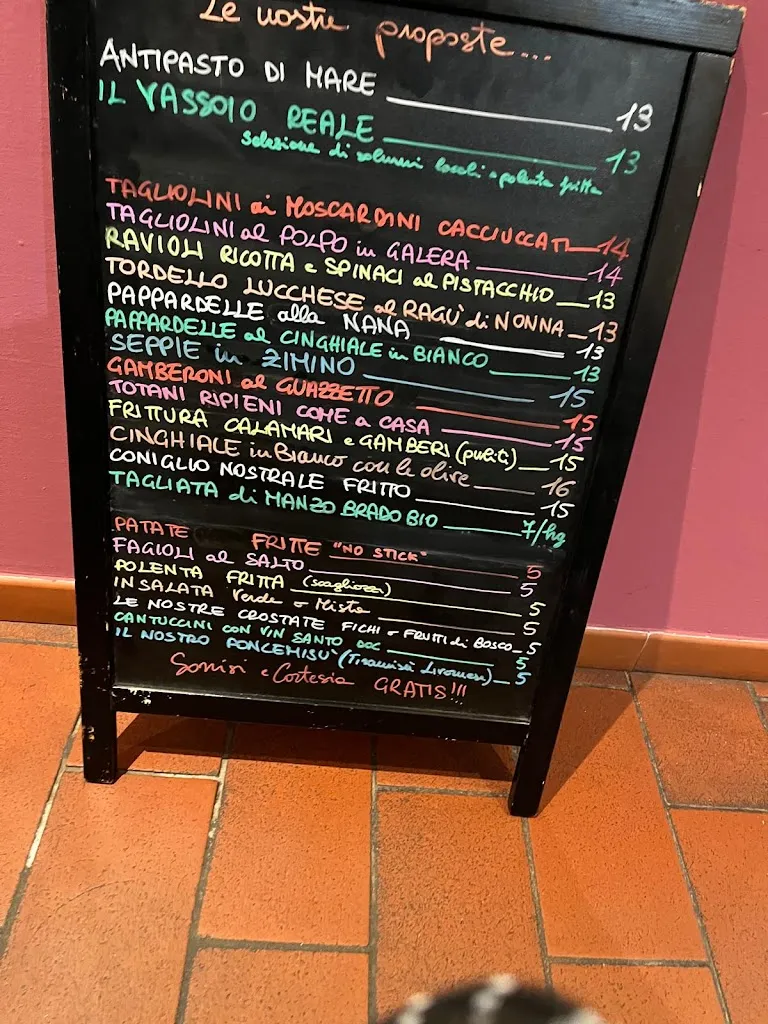 Le nostre proposte...
ANTIPASTO DI MARE 13
IL VASSOIO REALE 13
selezione di salumi locali e polenta fritta
TAGLIOLINI ai MOSCARDINI CACCIUCCATI 14
TAGLIOLINI al POLPO in GALERA 14
RAVIOLI RICOTTA e SPINACI al PISTACCHIO 13
TORDELLO LUCCHESE al RAGÙ di NONNA 13
PAPPARDELLE alla NANA 13
PAPPARDELLE al CINGHIALE in BIANCO 13
SEPPIE in ZIMINO 15
GAMBERONI al GUAZZETTO 15
TOTANI RIPIENI COME a CASA 15
FRITTURA CALAMARI e GAMBERI (puliti) 15
CINGHIALE in Bianco con le olive 16
CONIGLIO NOSTRALE FRITTO 15
TAGLIATA di MANZO BRADO BIO 7/hg
PATATE FRITTE "NO STICK" 5
FAGIOLI al SALTO 5
POLENTA FRITTA (scagliozzi) 5
INSALATA Verde o Mista 5
LE NOSTRE CROSTATE FICHI o FRUTTI di BOSCO 5
CANTUCCINI CON VIN SANTO DOC 5
IL NOSTRO PONCEMISÙ (Tiramisù Livornese) 5
Sorrisi e Cortesia GRATIS!!!